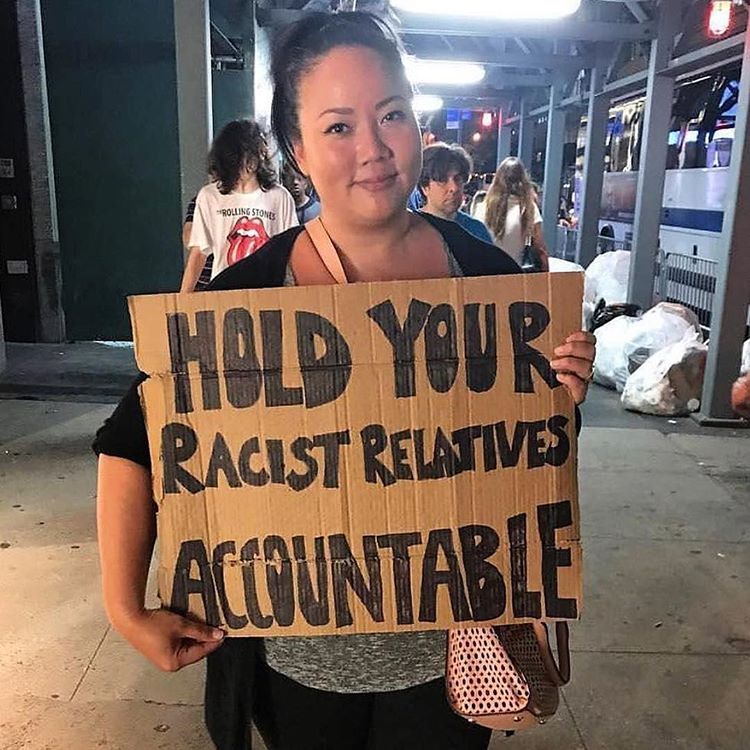 THE ROLLING STONES
HOLD YOUR
RACIST RELATIVES
ACCOUNTABLE